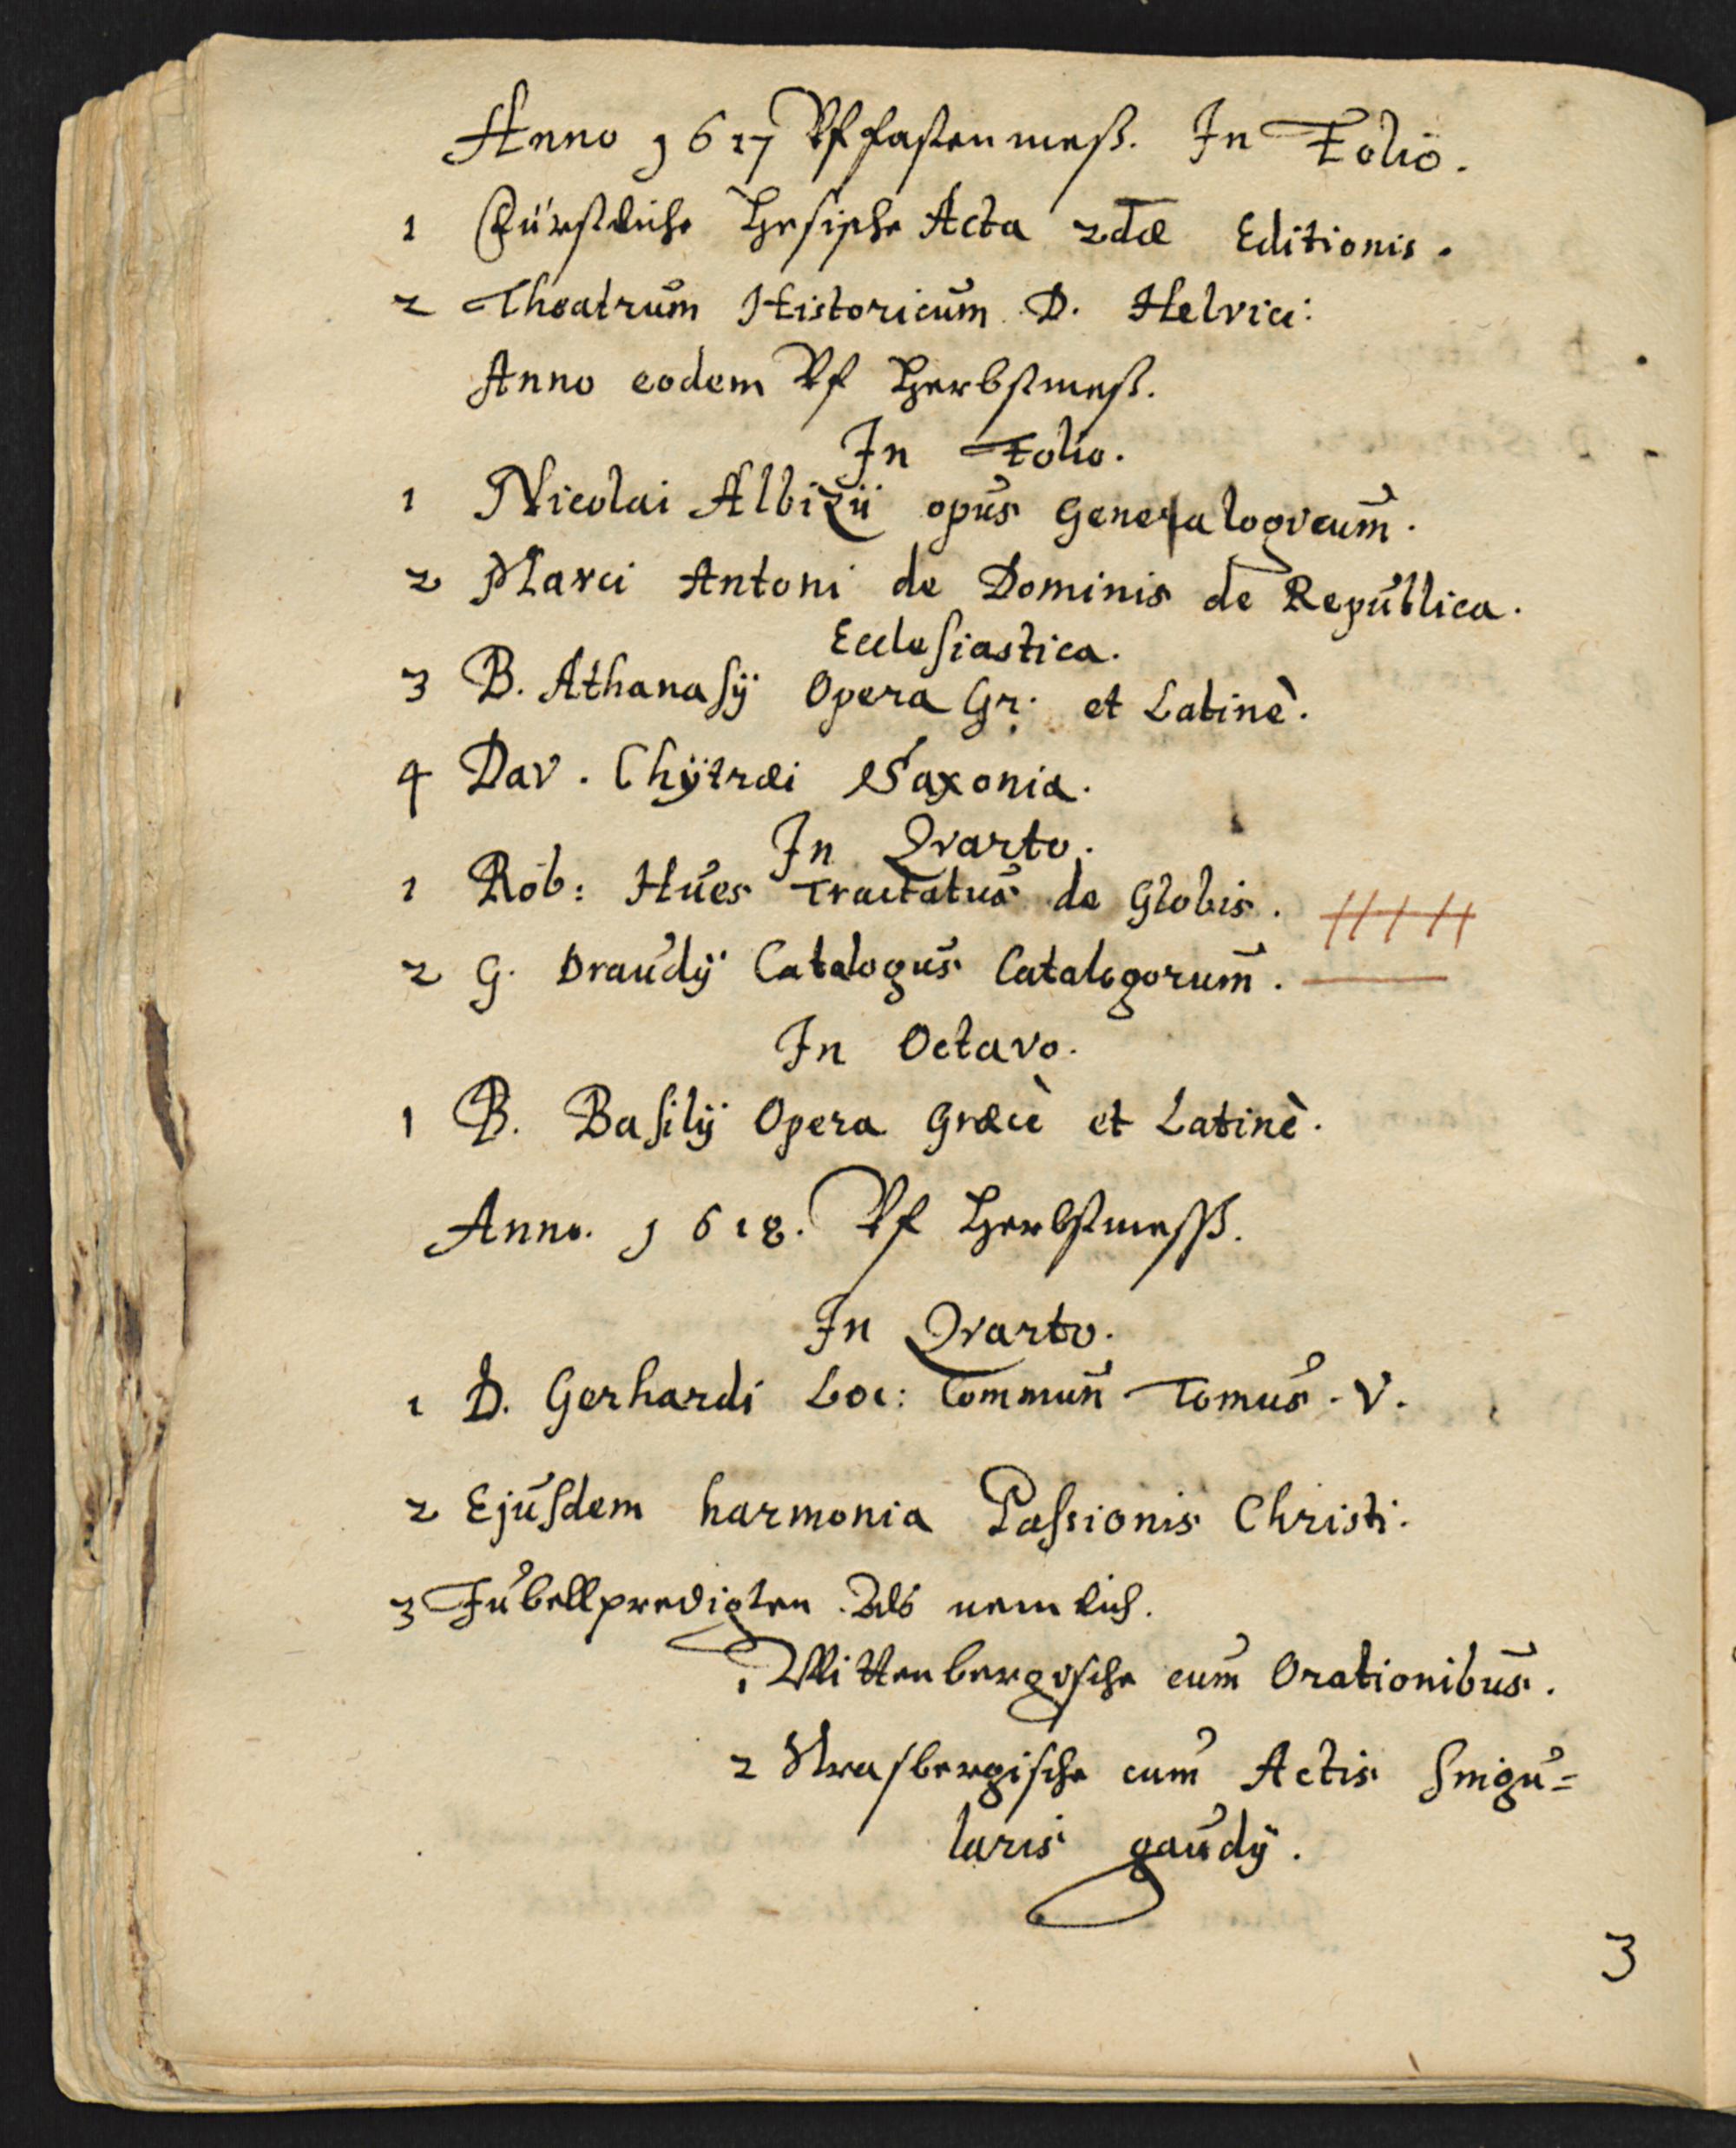 Anno 1617 Vf fastenmeß. In Folio.
1 Fürstliche Hesische Acta 2dæ Editionis.
2 Theatrum Historicum D. Helvici:
Anno eodem Vf Herbstmeß.
In Folio.
1 Nicolai Albizii opus Genealogicum.
2 Marci Antoni de Dominis de Republica.
Ecclesiastica.
3 B. Athanasij Opera Gr: et Latinè.
4 Dav. Chÿtræi Saxonia.
In Qvarto.
1 Rob: Hues Tractatus de Globis.
2 G. Draudij Catalogus Catalogorum.
In Octavo.
1 B. Basilij Opera Græcè et Latinè.
Anno. 1618. Vf Herbstmesß.
In Qvarto.
1 D. Gerhardi Loc: Commun Tomus. V.
2 Ejusdem harmonia Passionis Christi.
3 Jubellpredigten Als nemlich.
1 Wittenbergische cum Orationibus.
2 Strasbergische cum Actis singu=
laris gaudij.
3